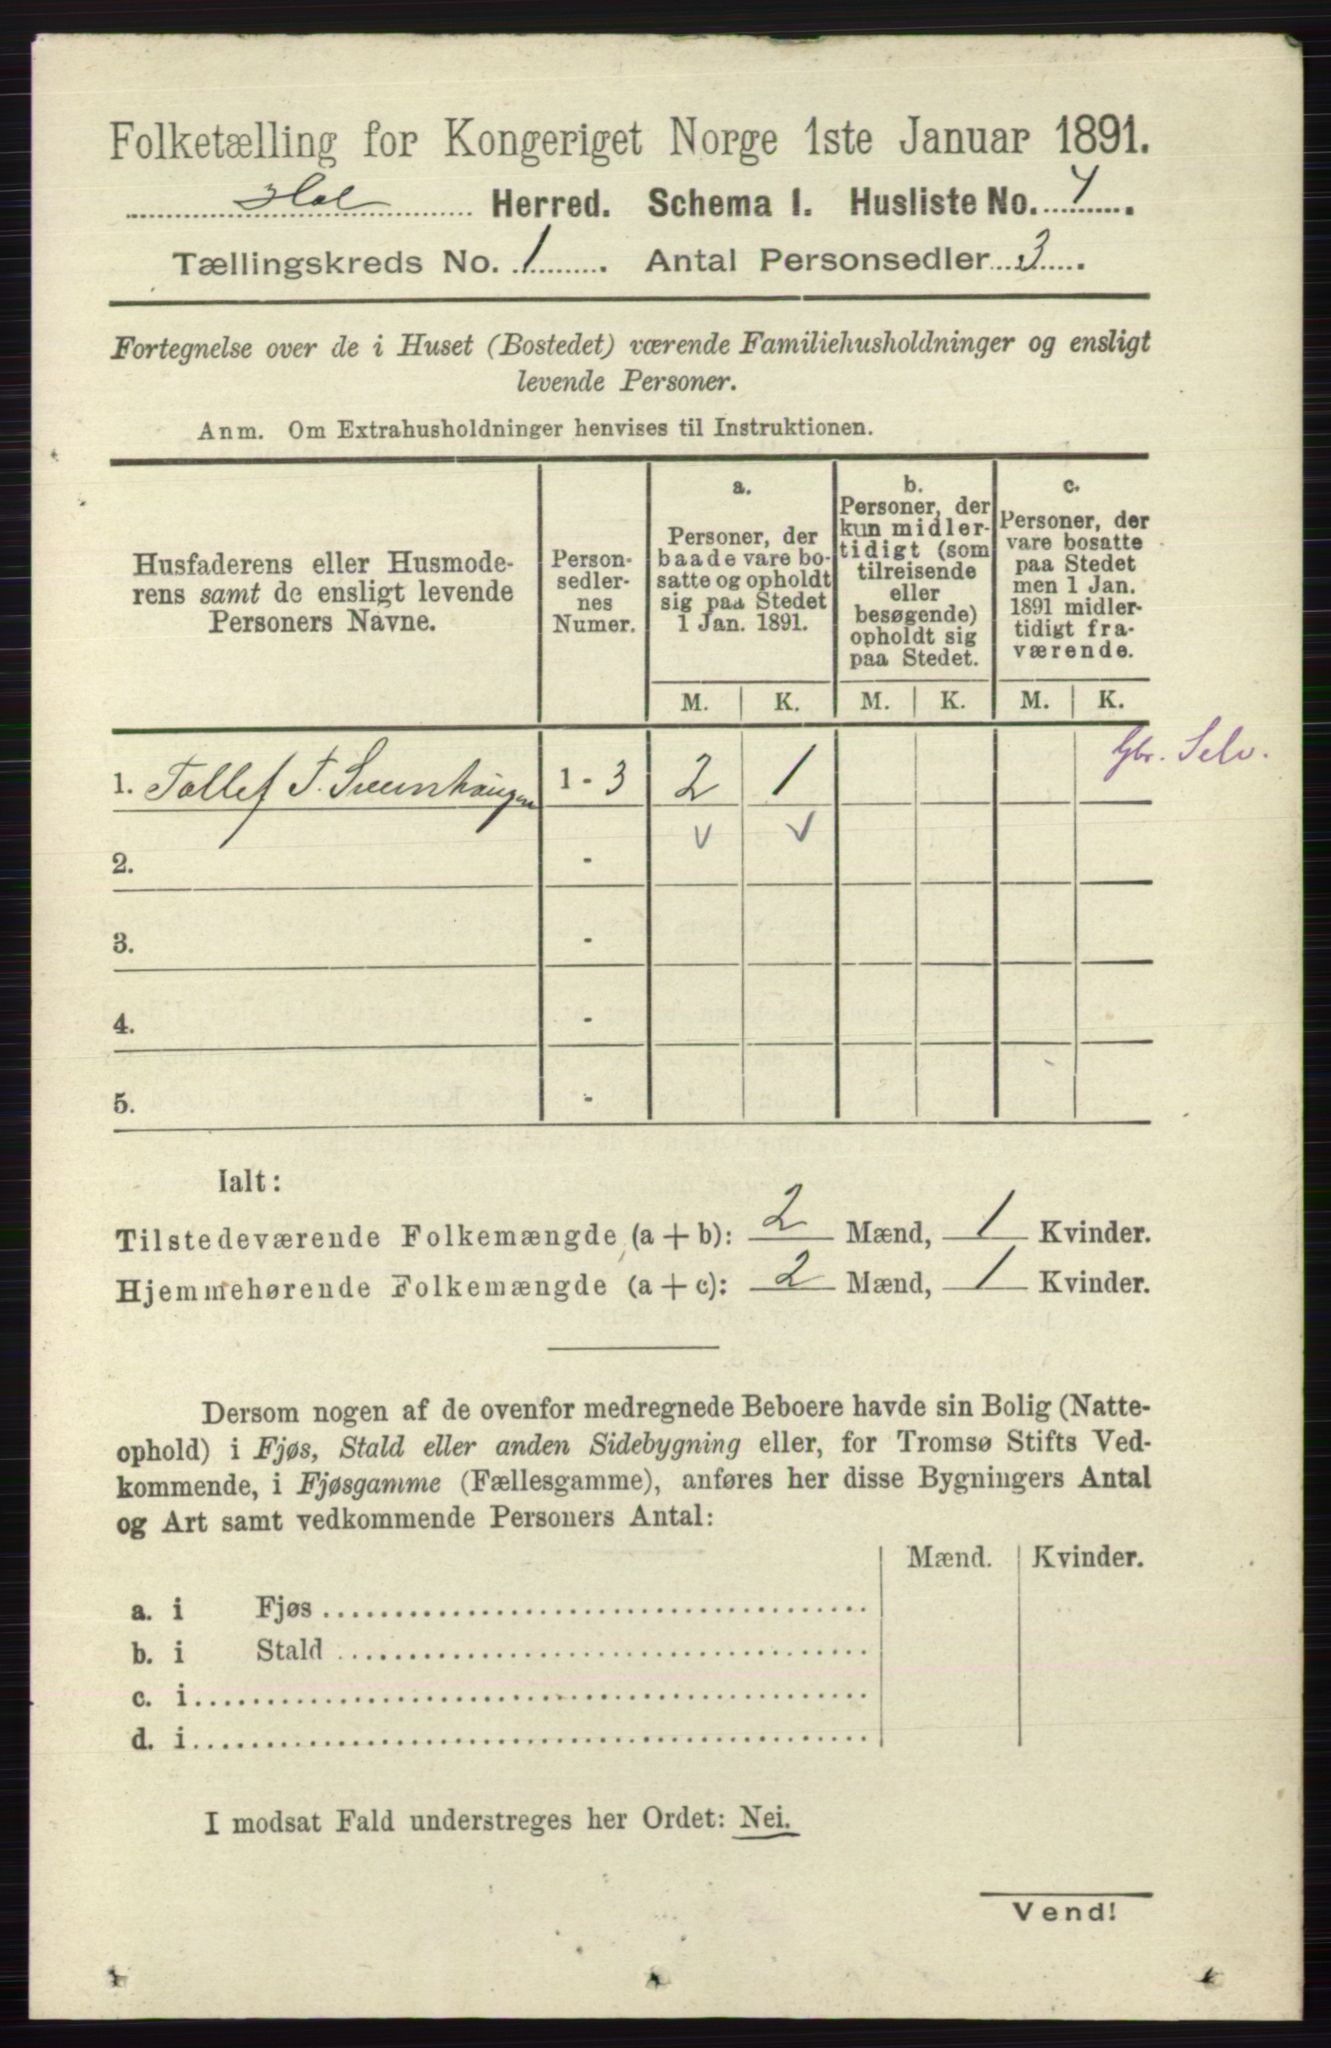 Folketælling for Kongeriget Norge 1ste Januar 1891.
Hol Herred. Schema 1. Husliste No. 4.
Tællingskreds No. 1. Antal Personsedler 3.
Fortegnelse over de i Huset (Bostedet) værende Familiehusholdninger og ensligt
levende Personer.
Anm. Om Extrahusholdninger henvises til Instruktionen.
Husfaderens eller Husmode-
rens samt de ensligt levende
Personers Navne.
Person-
sedler-
nes
Numer.
a.
Personer, der
baade vare bo-
satte og opholdt
sig paa Stedet
1 Jan. 1891.
b.
Personer, der
kun midler-
tidigt (som
tilreisende
eller
besøgende)
opholdt sig
paa Stedet.
c.
Personer, der
vare bosatte
paa Stedet
men 1 Jan.
1891 midler-
tidigt fra-
værende.
M. K. M. K. M. K.
1. Tollef T. 1 - 3 2 1 Gbr. Selv.
2. - v v
3. -
4. -
5. -
Ialt:
Tilstedeværende Folkemængde (a + b): 2 Mænd, 1 Kvinder.
Hjemmehørende Folkemængde (a + c): 2 Mænd, 1 Kvinder.
Dersom nogen af de ovenfor medregnede Beboere havde sin Bolig (Natte-
ophold) i Fjøs, Stald eller anden Sidebygning eller, for Tromsø Stifts Ved-
kommende, i Fjøsgamme (Fællesgamme), anføres her disse Bygningers Antal
og Art samt vedkommende Personers Antal:
Mænd. Kvinder.
a. i Fjøs
b. i Stald
c. i
d. i
I modsat Fald understreges her Ordet: Nei.
Vend!